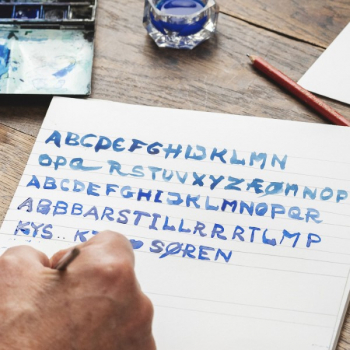 ABCDEFGHIJKLMN
OPQ RSTUVXYZÆØÅNOP
ABCDEFGHIJKLMNOPQR
ABBARSTILLRRRTLMP
KYS.. K ♥ SØREN